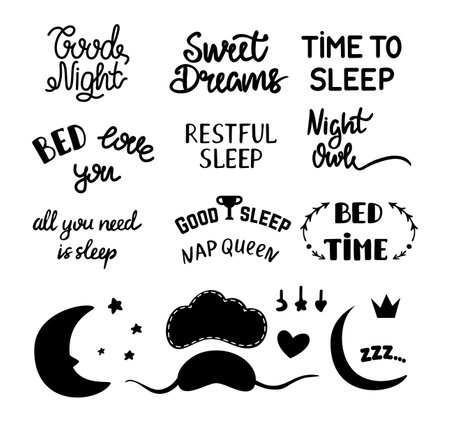 Good
Night
Sweet
Dreams
TiME TO
SLEEP
BED love
you
RESTFUL
SLEEP
Night
Owl
all you need
is sleep
GOOD SLEEP
NAP QUEEN
BED
TiME
zzz...